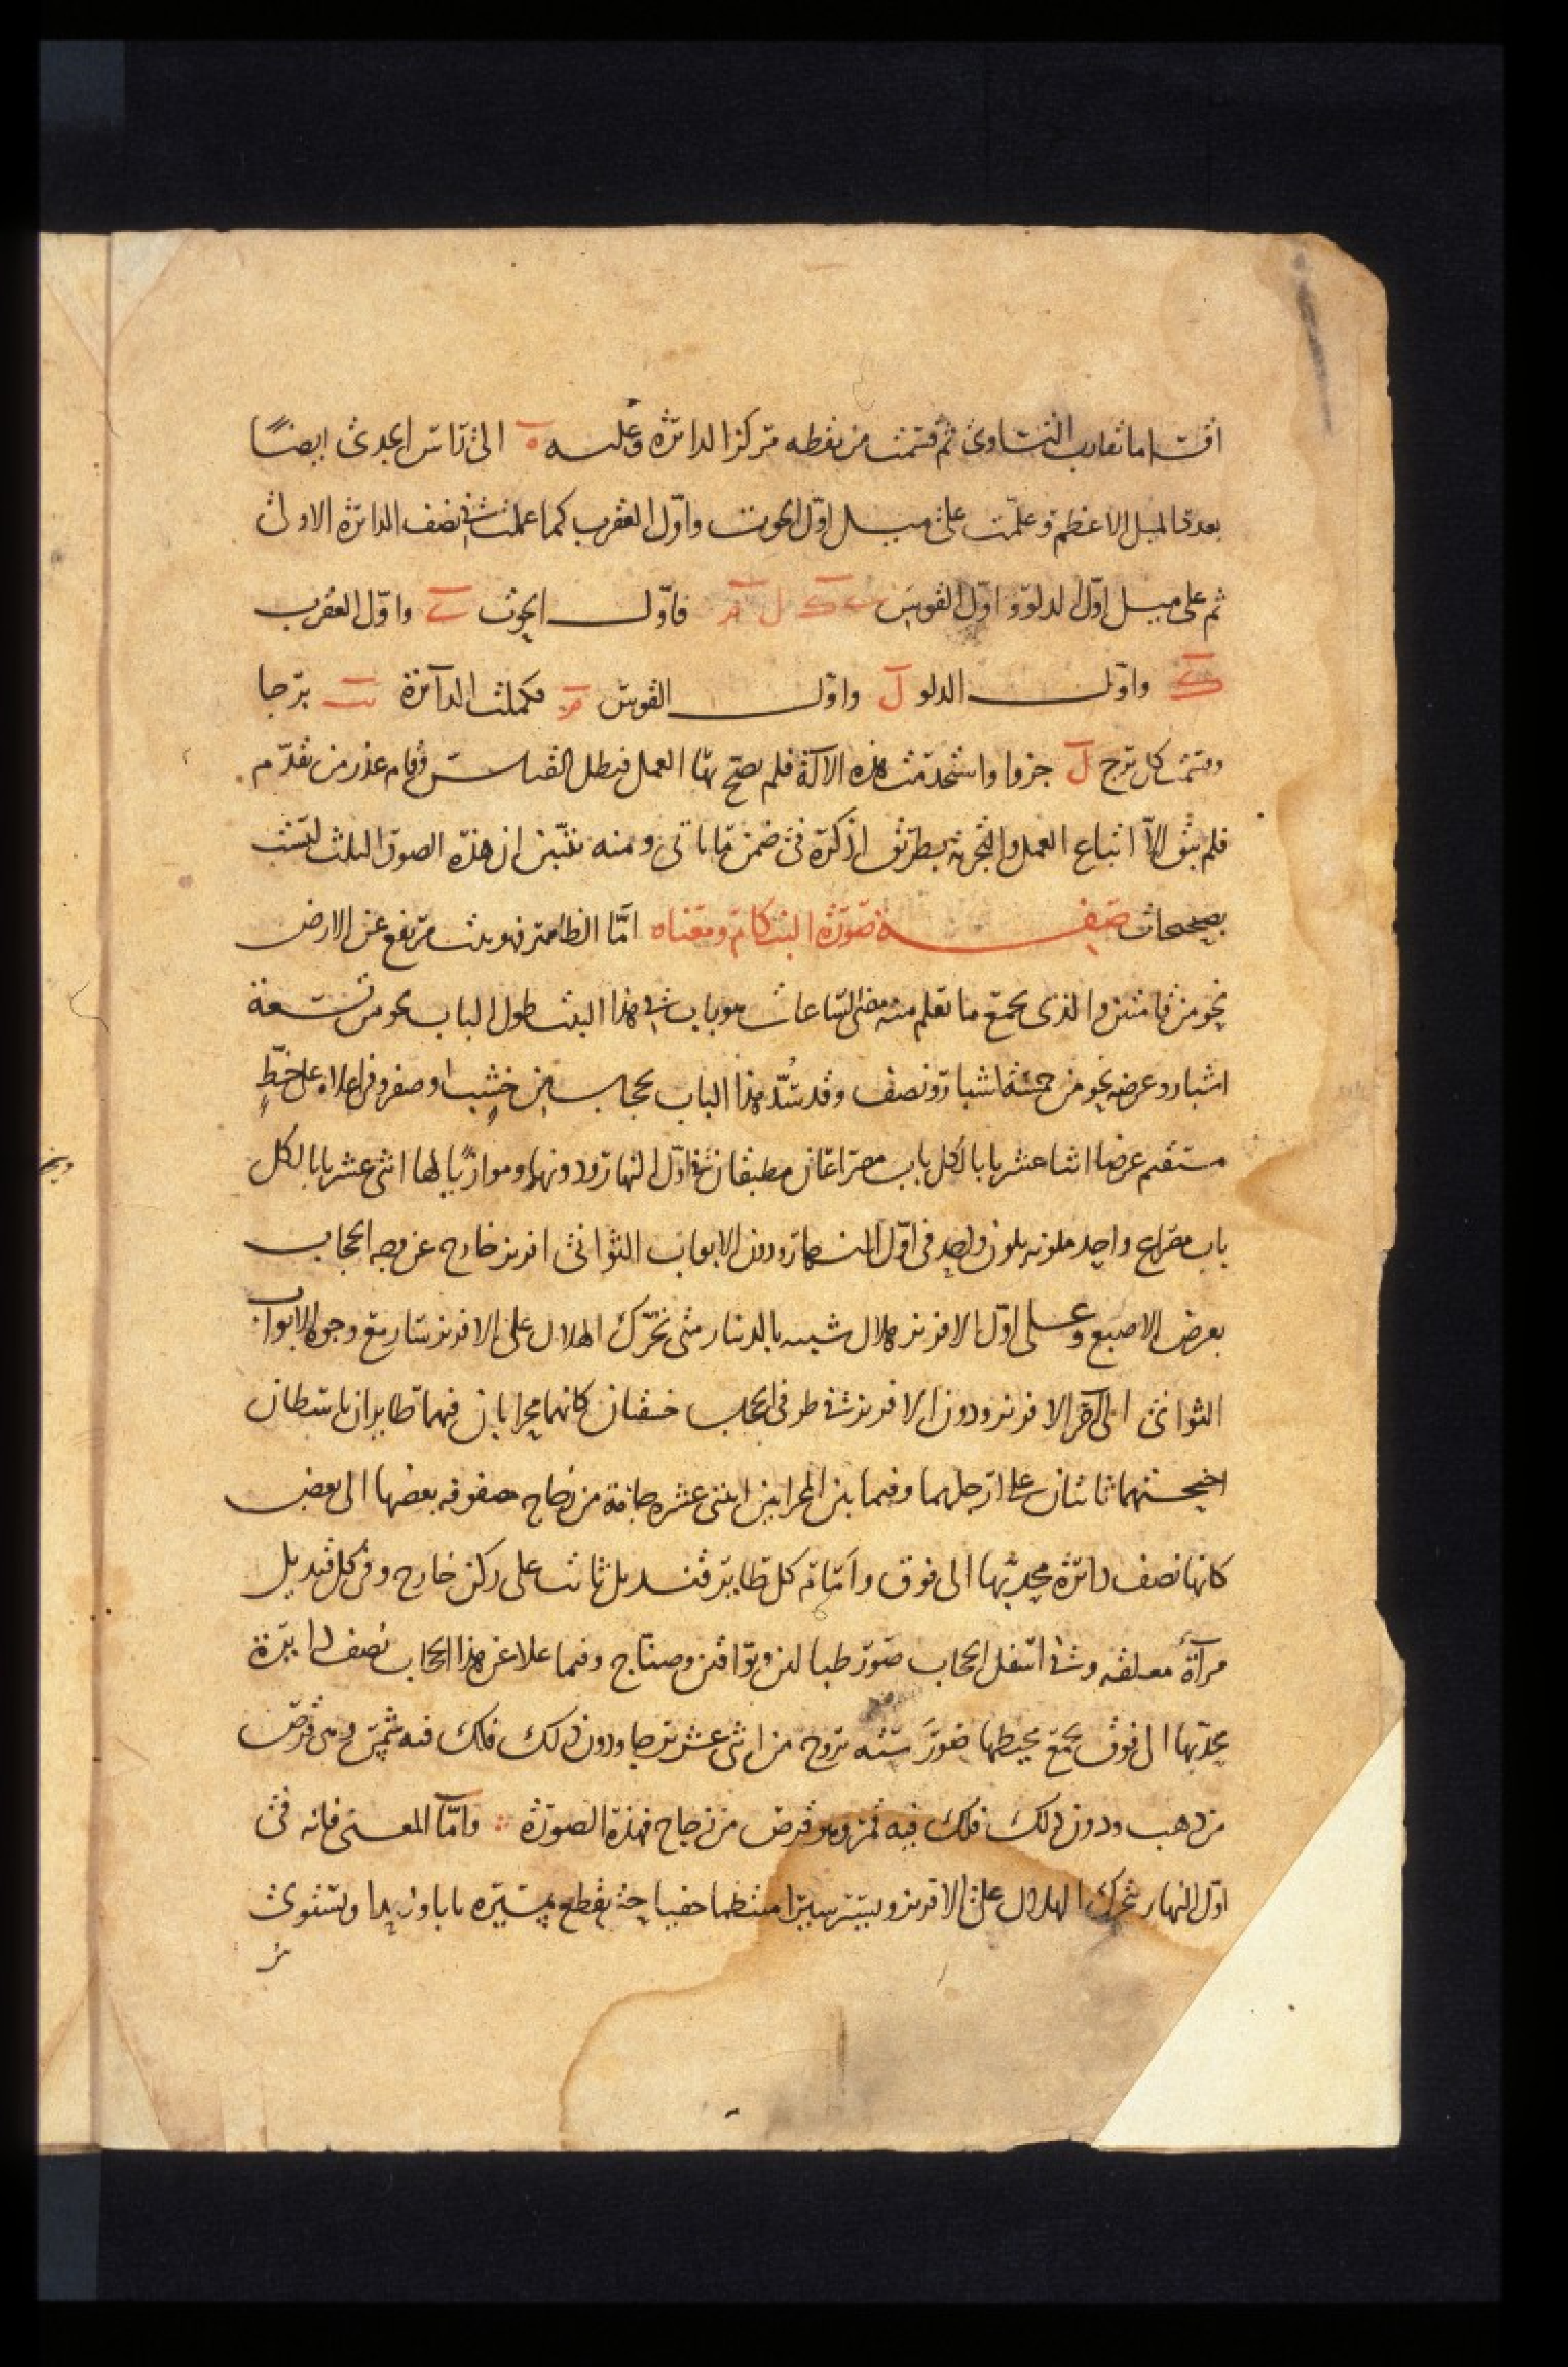 اقساما تقارب التساوى ثم قسمت من نقطه مركز الدائرة وعليه ه الى راس الجدى ايضًا
بعد قـ الميل الاعظم وعلّمت على ميل اوّل الحوت واوّل العقرب كما عملت فى نصف الدائرة الاولى
ثم على ميل اوّل الدلو و اوّل القوس ل مر فاوّل الحوت واوّل العقرب
ك واوّل الدلو ل واوّل القوس مر فكملت الدآئرة برجا
وقسمت كل برج ل جزوا واستخدمت هذه الآلة فلم يصح بها العمل فبطل القياس وقام عذر من تقدّم
فلم يبق الاّ اتباع العمل والتجربة بطريق اذكره فى ضمن ما ياتى ومنه يتبيّن ان هذه الصور الثلث ليست
بصحيحات صفـــة صورة البنكام ومعناه امّا الظاهر فهو بيت مرتفع عن الارض
نحو من قامتين والذى يجمع ما تعلم منه مضى الساعات هو باب فى هذا البيت طول الباب نحو من تسعة
اشبار وعرضه نحو من خمسة اشبار ونصف وقد سُدّ هذا الباب بحجاب من خشب او صفر وفى اعلاه على خطٍّ
مستقيم عرضا اثنا عشر بابا لكل باب مصراعان مطبقان فى اوّل النهار ودونها وموازيًا لها اثنى عشر بابا لكل
باب مصراع واحد ملونه بلون واحد فى اوّل النهار ودون الابواب الثوانى افريز خارج عن وجه الحجاب
بعرض الاصبع وعلى اوّل الافريز هلال شبيه بالدينار متى تحرّك الهلال على الافريز سار مع وجوه الابواب
الثوانى الى آخر الافريز ودون الافريز فى طرفى الحجاب خسفتان كانهما محرابان فيهما طايران باسطان
اجنحتهما ثابتان على ارجلهما وفيما بين المحرابين اثنتى عشره جامة من زجاج مصفوفه بعضها الى بعض
كانها نصف دائرة محدبها الى فوق وامام كل طاير قنديل ثابت على ركن خارج وفى كل قنديل
مرآة معلقه وفى اسفل الحجاب صور طبالين وبوّاقين وصناج وفيما علا عن هذا الحجاب نصف دايرة
محدّبها الى فوق يجمع محيطها صورَ ستة بروج من اثنى عشر برجا ودون ذلك فلك فيه شمس وهى قرص
من ذهب ودون ذلك فلك فيه قمر وهو قرص من زجاج فهذه الصورة ∴ وامّا المعنى فانه فى
اوّل النهار يتحرك الهلال على الافريز ويسير سيرا منتظما خفيا حتى يقطع بمسيره بابا واحدا ويستوى